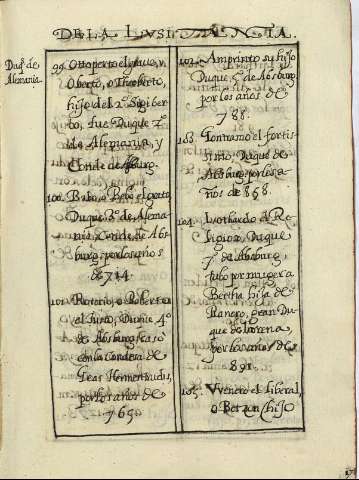 DE LA LUSITANIA.
Duqs de
Alemania.
99. Ottoperto el
Oberto, o Theoberto,
hijo del 2º Sigiber
to, fue Duque 2º
de Alemania, y
Conde de
100. Babo, o Bebo el goto
Duque 3º de Alema
nia Conde de Abs
burg, por los años
de 714.
101. Rotario, o Roberto
el Justo, Duque 4º
de Absburg casó
con la Condesa de
Geas Hermentrudis,
por los años de
765.
102. Amprinto su hijo
Duque 5º de Absburg,
por los años de
788.
103. Gontramo el fortis
simo, Duque de
Absburg por los a
ños de 858.
104. Luthardo el Re
ligioso, Duque
7º de Absburg,
tubo por muger a
Bertha hija de
Ranero, gran Du
que de Lorena,
por los años de
891.
105. Vvenero el Liberal,
o Betzon (hijo